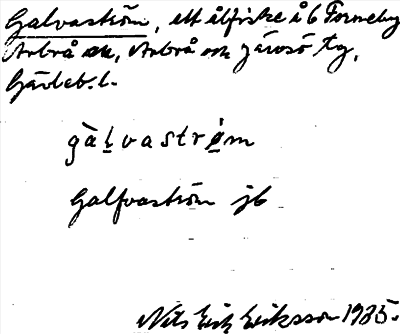 Galvaström, ett ålfiske å 6 Forneby
Arbrå sn, Arbrå och Järvsö tg,
Gävleb. l.
gàḷvastrø̣m
Galfvaström jb
Nils Erik Eriksson 1935.